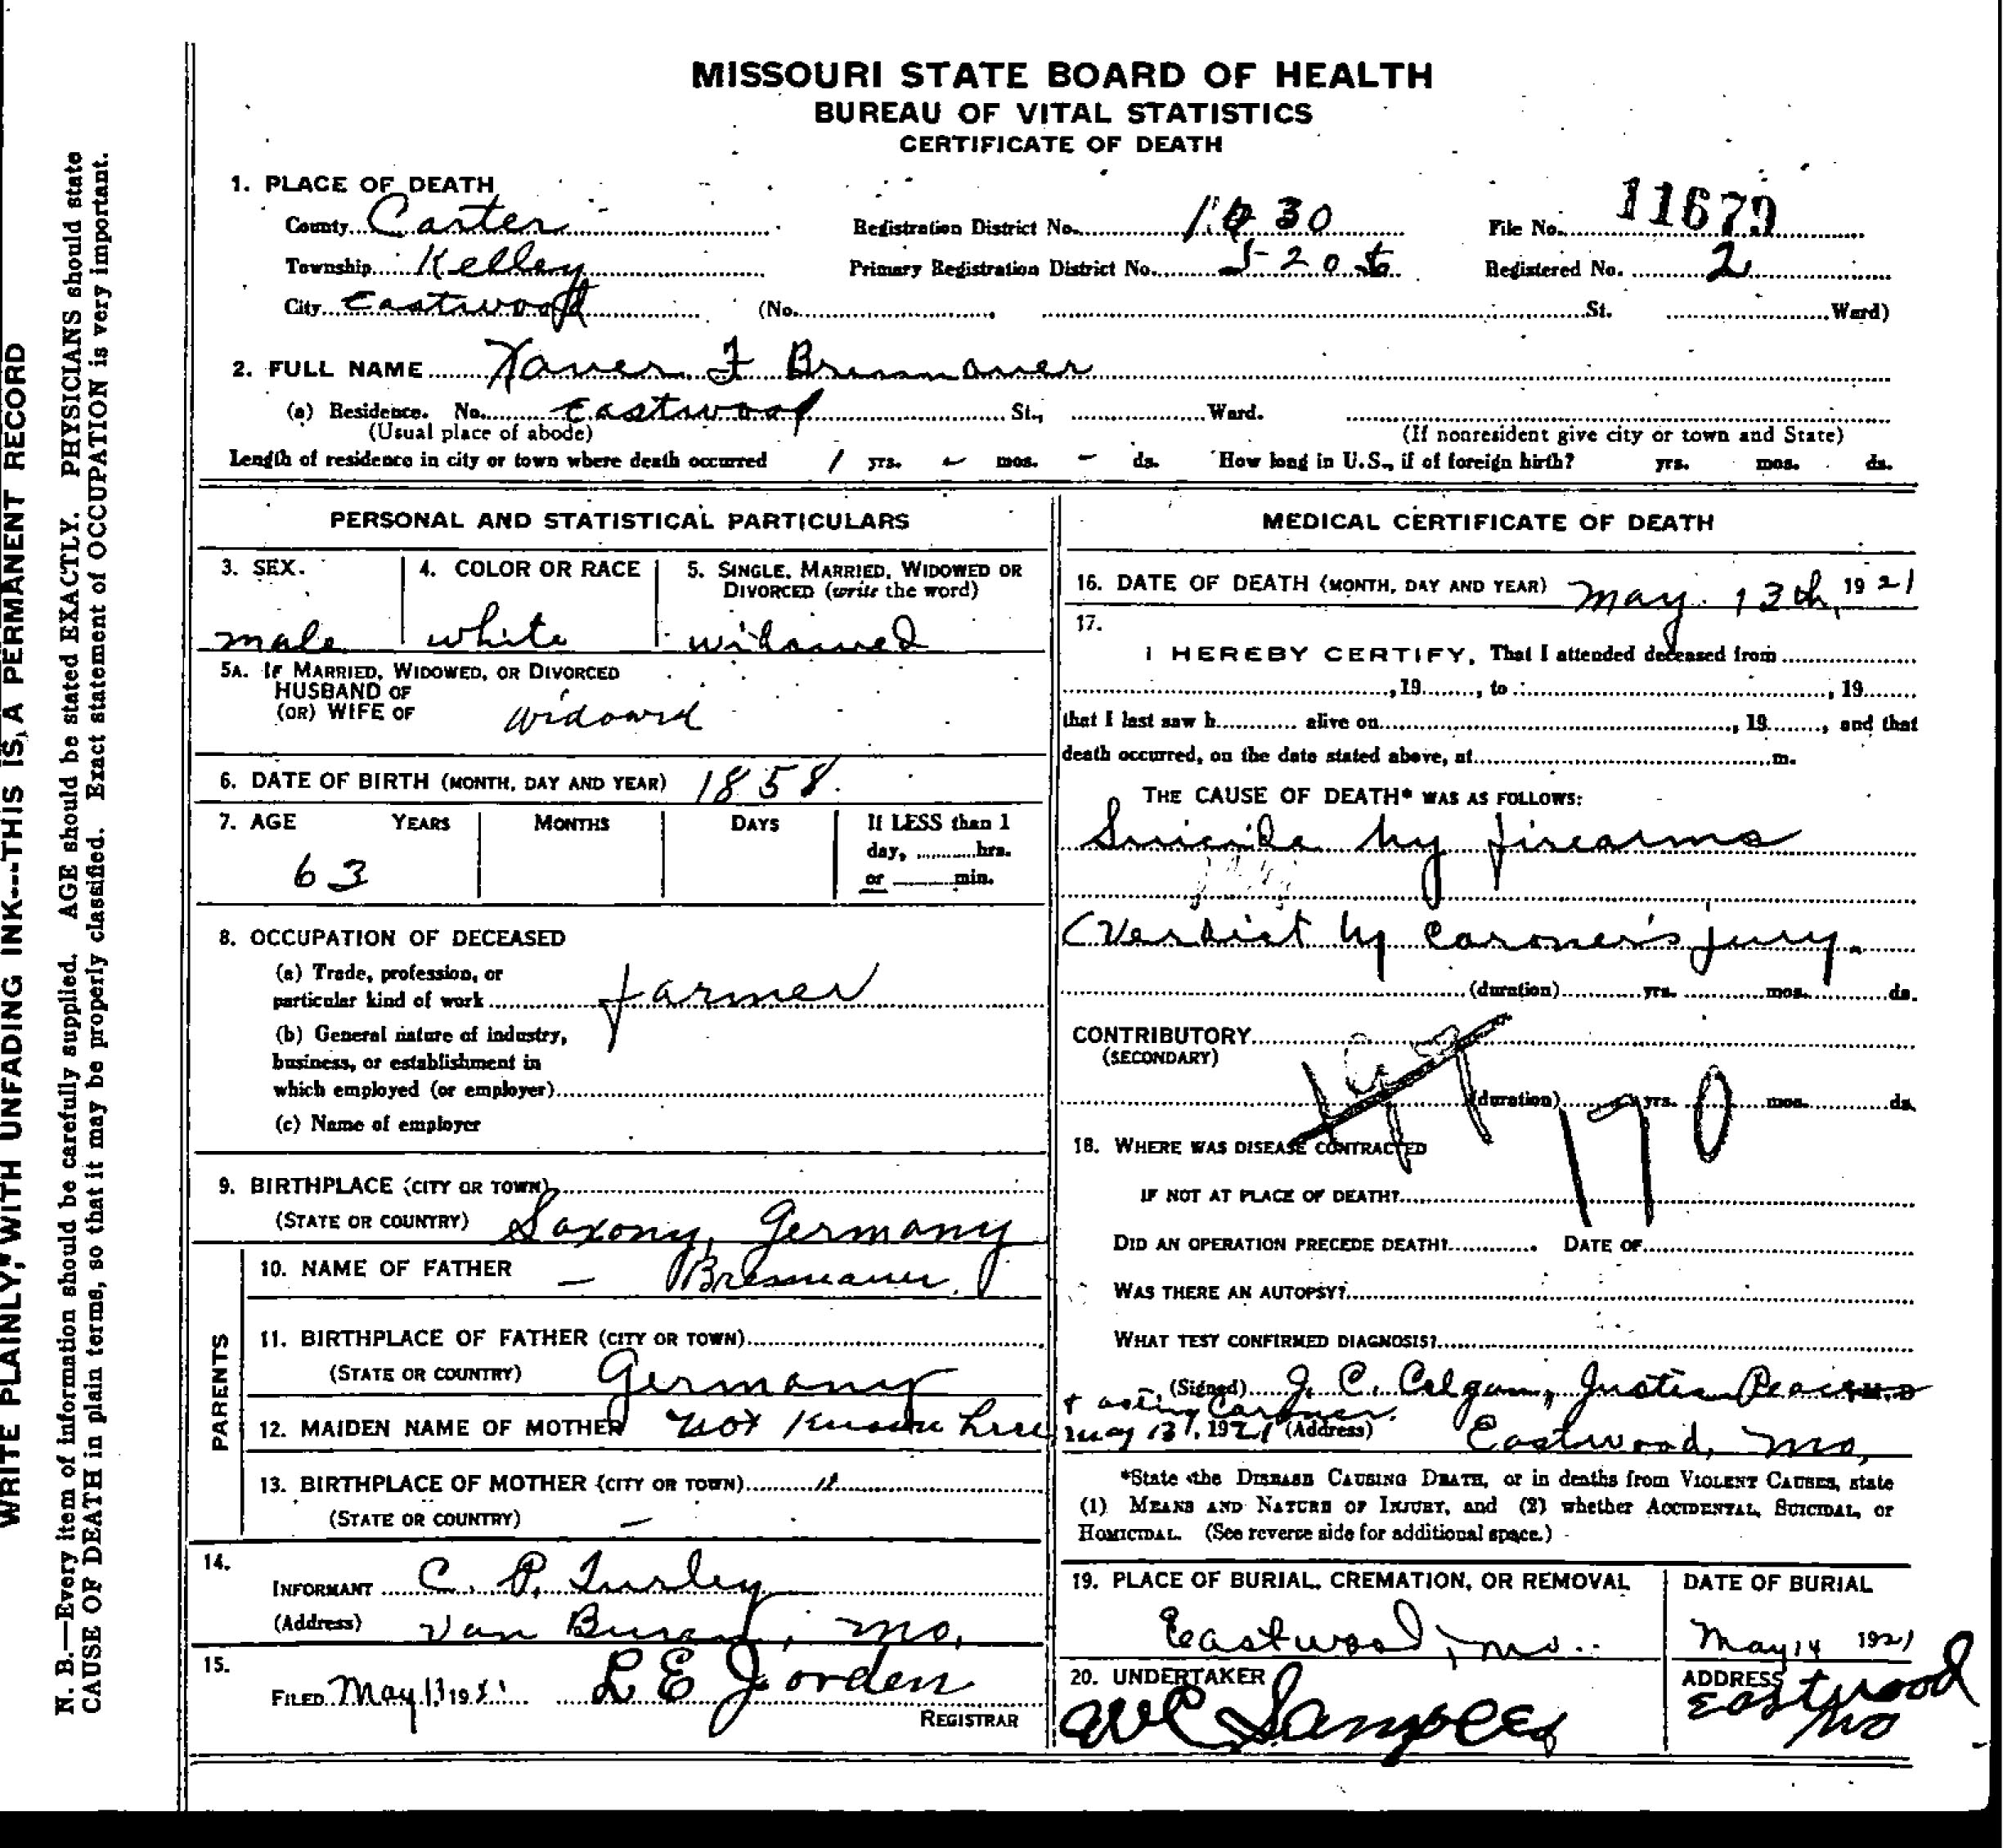 MISSOURI STATE BOARD OF HEALTH
BUREAU OF VITAL STATISTICS
CERTIFICATE OF DEATH
1. PLACE OF DEATH
County Carter Registration District No. 1030 File No. 11679
Township Kelley Primary Registration District No. 5206 Registered No. 2
City Eastwood (No. St. Ward)
2. FULL NAME Xaver F
(a) Residence. No. Eastwood St., Ward.
(Usual place of abode) (If nonresident give city or town and State)
Length of residence in city or town where death occurred 1 yrs. - mos. - ds. How long in U.S., if of foreign birth? yrs. mos. ds.
PERSONAL AND STATISTICAL PARTICULARS
3. SEX. 4. COLOR OR RACE 5. SINGLE, MARRIED, WIDOWED OR
DIVORCED (write the word)
male white widowed
5A. IF MARRIED, WIDOWED, OR DIVORCED
HUSBAND OF
(OR) WIFE OF widowed
6. DATE OF BIRTH (MONTH, DAY AND YEAR) 1858.
7. AGE YEARS MONTHS DAYS If LESS than 1
day, hrs.
or min.
63
8. OCCUPATION OF DECEASED
(a) Trade, profession, or
particular kind of work farmer
(b) General nature of industry,
business, or establishment in
which employed (or employer)
(c) Name of employer
9. BIRTHPLACE (CITY OR TOWN)
(STATE OR COUNTRY) Saxony, Germany
PARENTS
10. NAME OF FATHER -
11. BIRTHPLACE OF FATHER (CITY OR TOWN)
(STATE OR COUNTRY) Germany
12. MAIDEN NAME OF MOTHER Not Known here
13. BIRTHPLACE OF MOTHER (CITY OR TOWN) "
(STATE OR COUNTRY) -
14.
INFORMANT C. P. Turley
(Address) Van Buren, Mo.
15.
FILED May 13 1921 L E Jorden
REGISTRAR
MEDICAL CERTIFICATE OF DEATH
16. DATE OF DEATH (MONTH, DAY AND YEAR) May 13th, 1921
17.
I HEREBY CERTIFY, That I attended deceased from
, 19 , to , 19
that I last saw h alive on , 19 , and that
death occurred, on the date stated above, at m.
THE CAUSE OF DEATH* WAS AS FOLLOWS:
Suicide by firearms
(Verdict by Coroner's jury.
(duration) yrs. mos. ds.
CONTRIBUTORY
(SECONDARY)
(duration) yrs. mos. ds.
170
18. WHERE WAS DISEASE CONTRACTED
IF NOT AT PLACE OF DEATH?
DID AN OPERATION PRECEDE DEATH? DATE OF
WAS THERE AN AUTOPSY?
WHAT TEST CONFIRMED DIAGNOSIS?
(Signed) J. C. Justice Peace M.D
+ acting Coroner.
May 13, 1921 (Address) Eastwood, Mo,
*State the DISEASE CAUSING DEATH, or in deaths from VIOLENT CAUSES, state
(1) MEANS AND NATURE OF INJURY, and (2) whether ACCIDENTAL, SUICIDAL, or
HOMICIDAL. (See reverse side for additional space.)
19. PLACE OF BURIAL, CREMATION, OR REMOVAL DATE OF BURIAL
Eastwood, Mo. May 14 1921
20. UNDERTAKER ADDRESS
W C Eastwood
Mo
WRITE PLAINLY, WITH UNFADING INK---THIS IS A PERMANENT RECORD
N. B.—Every item of information should be carefully supplied. AGE should be stated EXACTLY. PHYSICIANS should state
CAUSE OF DEATH in plain terms, so that it may be properly classified. Exact statement of OCCUPATION is very important.